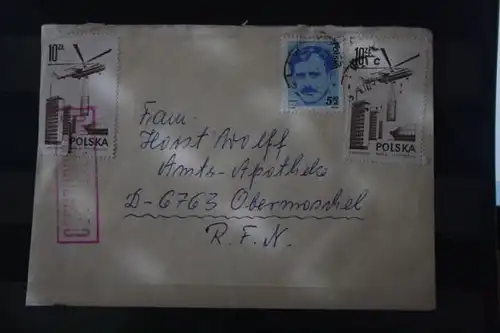 10 ZŁ
POLSKA
10 ZŁ
POLSKA
Fam.
Horst Wolff
Amts-Apotheke
D-6763 Obermoschel
R.F.N.